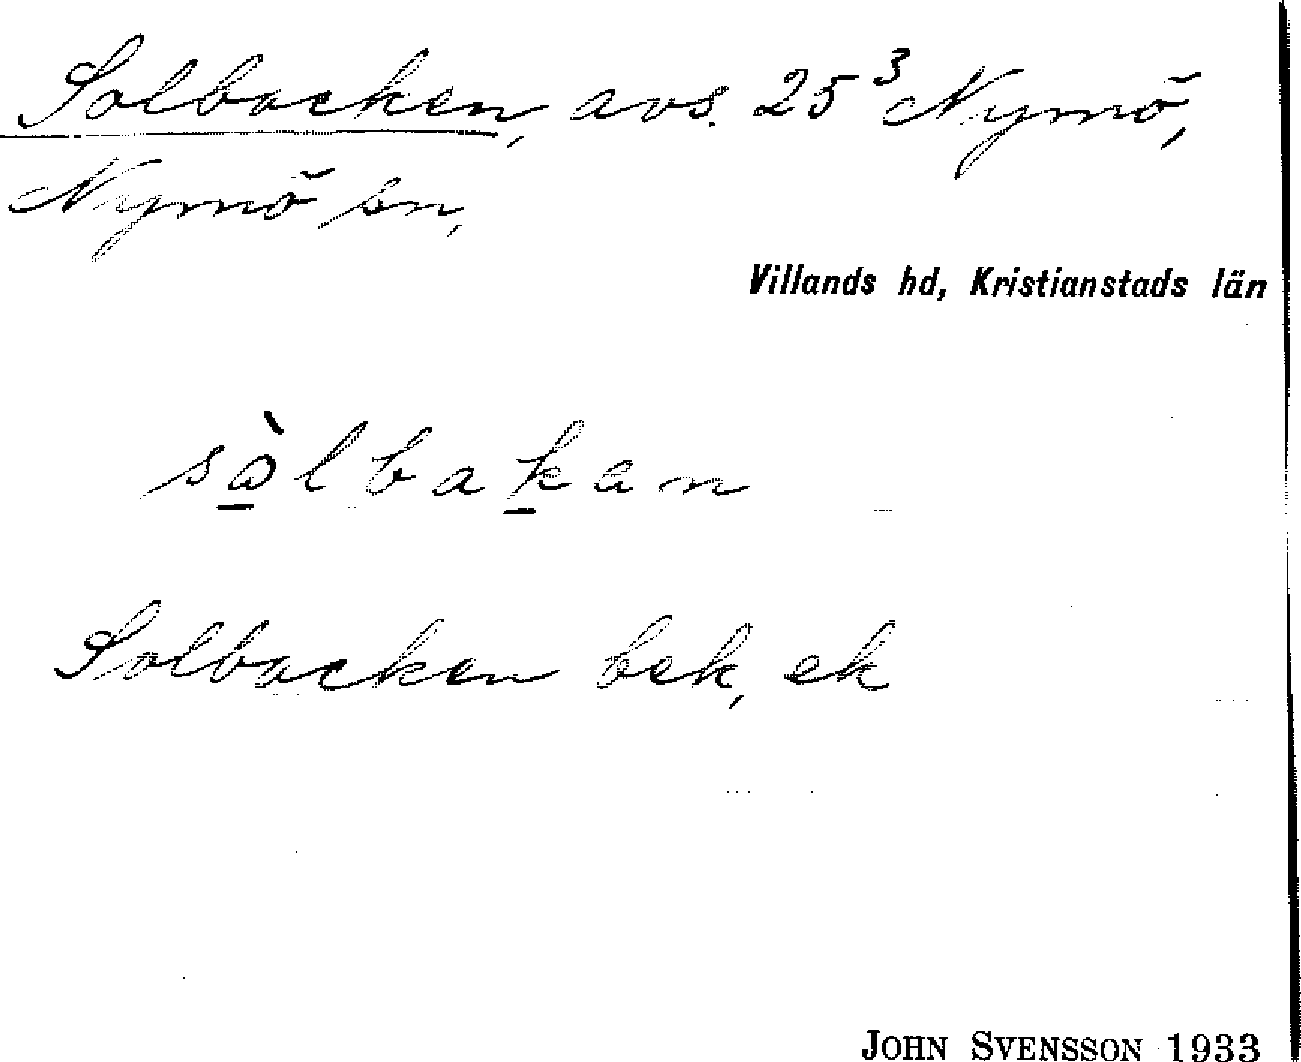 Solbacken, avs. 25³ Nymö,
Nymö sn,
Villands hd, Kristianstads län
Solbacken bek, ek
JOHN SVENSSON 1933